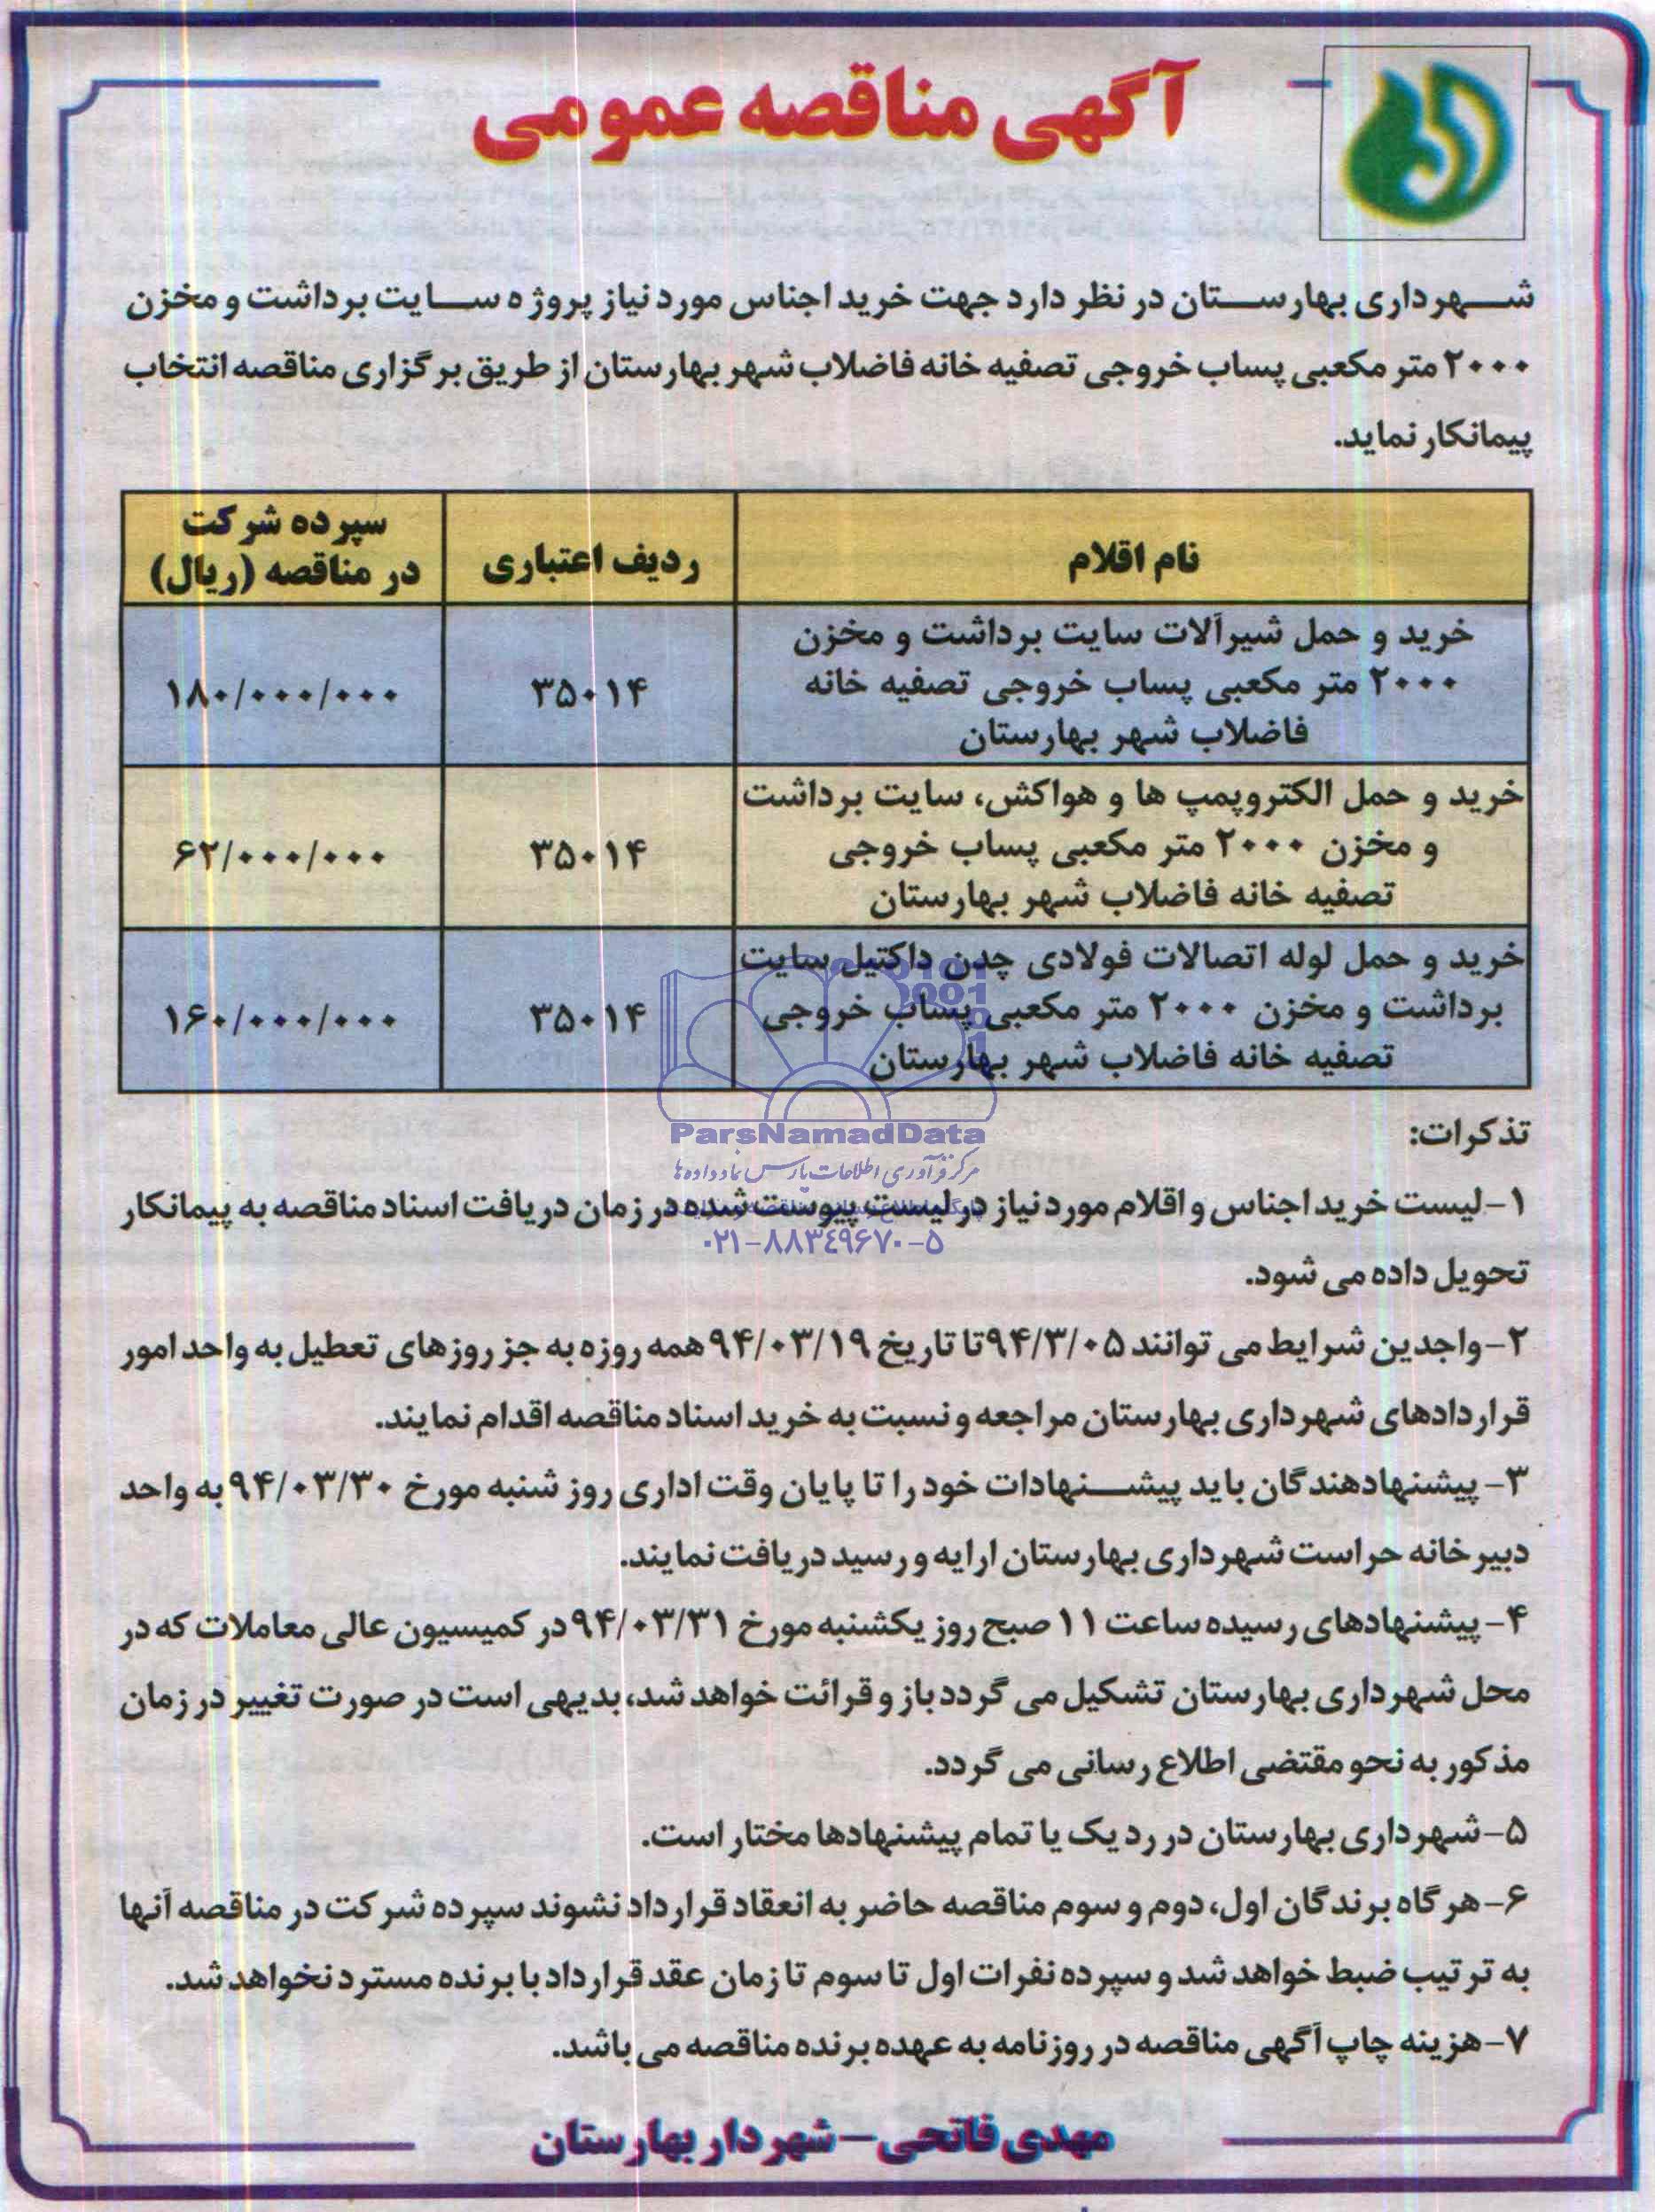 آگهی مناقصه عمومی
شهرداری بهارستان در نظر دارد جهت خرید اجناس مورد نیاز پروژه سایت برداشت و مخزن
۲۰۰۰ متر مکعبی پساب خروجی تصفیه خانه فاضلاب شهر بهارستان از طریق برگزاری مناقصه انتخاب
پیمانکار نماید.
نام اقلام
ردیف اعتباری
سپرده شرکت
در مناقصه (ریال)
خرید و حمل شیرآلات سایت برداشت و مخزن
۲۰۰۰ متر مکعبی پساب خروجی تصفیه خانه
فاضلاب شهر بهارستان
۳۵۰۱۴
۱۸۰/۰۰۰/۰۰۰
خرید و حمل الکتروپمپ ها و هواکش، سایت برداشت
و مخزن ۲۰۰۰ متر مکعبی پساب خروجی
تصفیه خانه فاضلاب شهر بهارستان
۳۵۰۱۴
۶۲/۰۰۰/۰۰۰
خرید و حمل لوله اتصالات فولادی چدن داکتیل سایت
برداشت و مخزن ۲۰۰۰ متر مکعبی پساب خروجی
تصفیه خانه فاضلاب شهر بهارستان
۳۵۰۱۴
۱۶۰/۰۰۰/۰۰۰
ParsNamadData
مرکز فرآوری اطلاعات پارس نماد داده ها
۰۲۱-۸۸۳۴۹۶۷۰-۵
تذکرات:
۱-لیست خرید اجناس و اقلام مورد نیاز در لیست پیوست شده در زمان دریافت اسناد مناقصه به پیمانکار
تحویل داده می شود.
۲-واجدین شرایط می توانند ۹۴/۳/۰۵ تا تاریخ ۹۴/۰۳/۱۹ همه روزه به جز روزهای تعطیل به واحد امور
قراردادهای شهرداری بهارستان مراجعه و نسبت به خرید اسناد مناقصه اقدام نمایند.
۳- پیشنهاد دهندگان باید پیشنهادات خود را تا پایان وقت اداری روز شنبه مورخ ۹۴/۰۳/۳۰ به واحد
دبیرخانه حراست شهرداری بهارستان ارایه و رسید دریافت نمایند.
۴- پیشنهادهای رسیده ساعت ۱۱ صبح روز یکشنبه مورخ ۹۴/۰۳/۳۱ در کمیسیون عالی معاملات که در
محل شهرداری بهارستان تشکیل می گردد باز و قرائت خواهد شد، بدیهی است در صورت تغییر در زمان
مذکور به نحو مقتضی اطلاع رسانی می گردد.
۵-شهرداری بهارستان در رد یک یا تمام پیشنهادها مختار است.
۶-هر گاه برندگان اول، دوم و سوم مناقصه حاضر به انعقاد قرارداد نشوند سپرده شرکت در مناقصه آنها
به ترتیب ضبط خواهد شد و سپرده نفرات اول تا سوم تا زمان عقد قرارداد با برنده مسترد نخواهد شد.
۷-هزینه چاپ آگهی مناقصه در روزنامه به عهده برنده مناقصه می باشد.
مهدی فاتحی-شهردار بهارستان